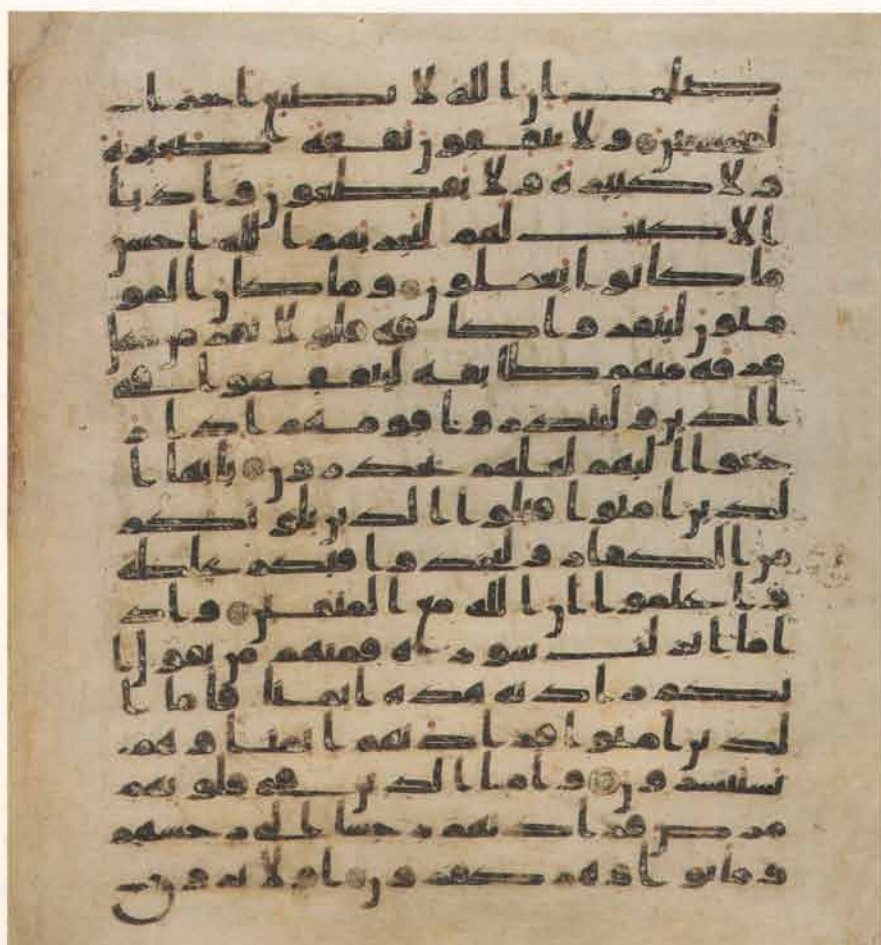 صلح ان الله لا يضيع اجر ا
لمحسنين ولا ينفقون نفقة صغيرة
ولا كبيرة ولا يقطعون واديا
الا كتب لهم ليجزيهم الله احسن
ما كانوا يعملون وما كان المو
منون لينفروا كافة فلولا نفر من كل
فرقة منهم طائفة ليتفقهوا في
الدين ولينذروا قومهم اذا ر
جعوا اليهم لعلهم يحذرون يايها ا
لذين امنوا قتلوا الذين يلونكم
من الكفار وليجدوا فيكم غلظة
واعلموا ان الله مع المتقين واذ
ا ما انزلت سورة فمنهم من يقول ا
يكم زادته هذه ايمنا فاما ا
لذين امنوا فزادتهم ايمنا وهم
يستبشرون واما الذين في قلوبهم
مرض فزادتهم رجسا الى رجسهم
وماتوا وهم كفرون اولا يرون